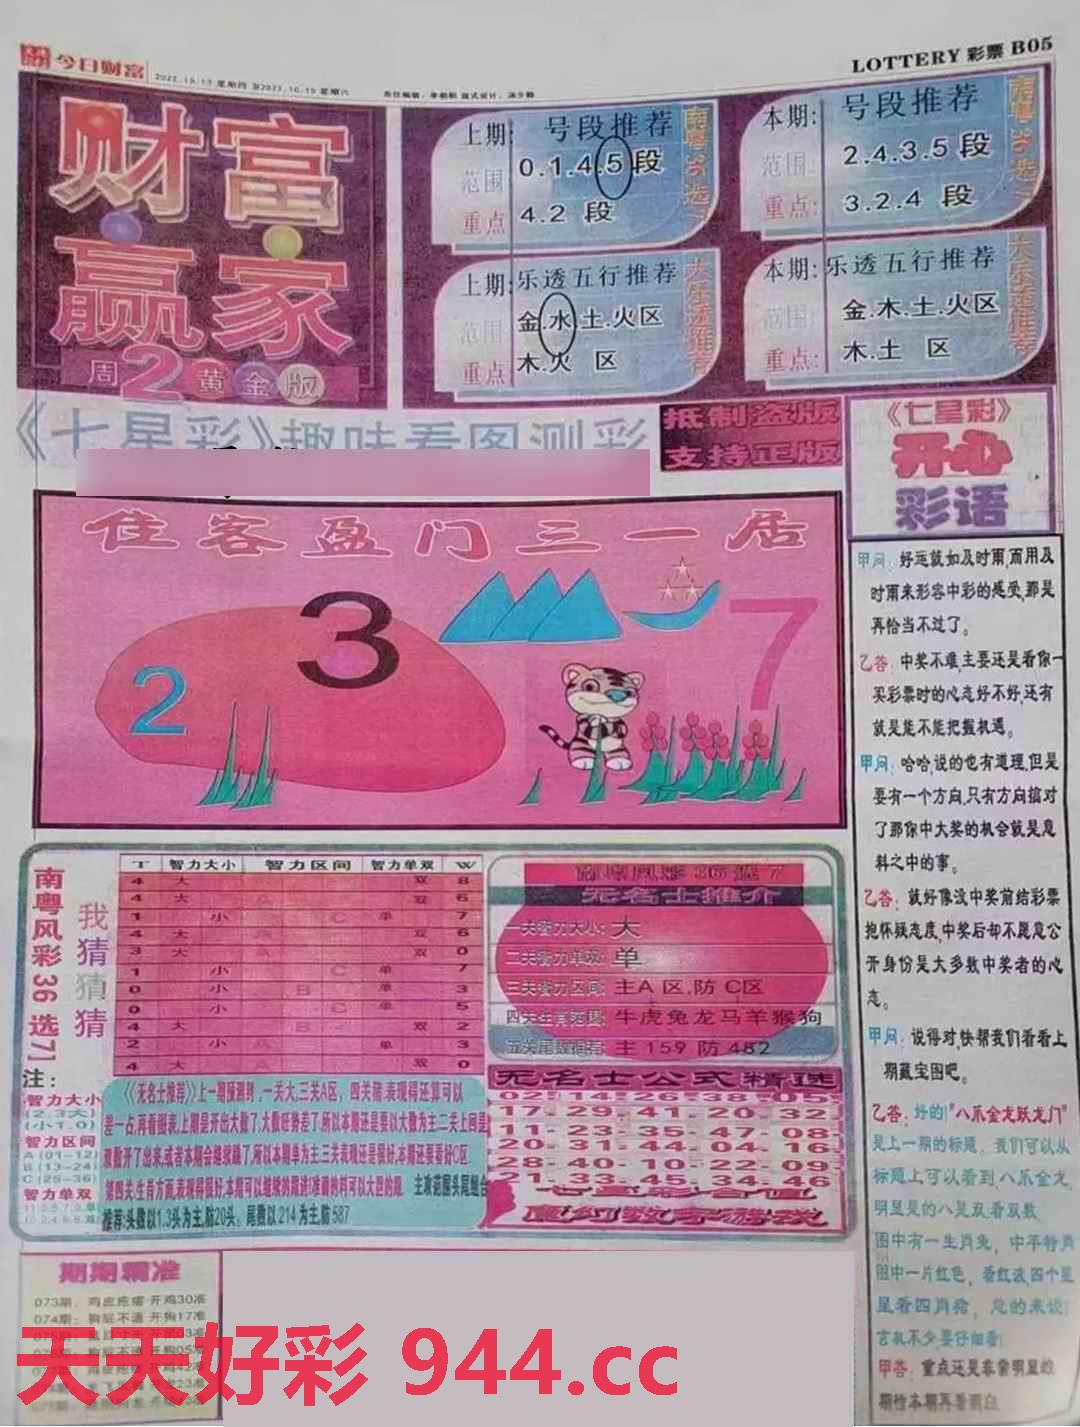 今日财富
LOTTERY 彩票 B05
财富
赢家
周2黄金版
上期: 号段推荐
范围 0.1.4.5 段
重点 4.2 段
本期: 号段推荐
范围: 2.4.3.5 段
重点: 3.2.4 段
上期: 乐透五行推荐
范围 金.水.土.火区
重点 木.火 区
大乐透推荐
本期: 乐透五行推荐
范围: 金.木.土.火区
重点: 木.土 区
大乐透推荐
《七星彩》趣味看图测彩
抵制盗版
支持正版
佳客盈门三一居
2
3
7
《七星彩》
开心
彩语
甲问: 好运就如及时雨,而用及
时雨来形容中彩的感受,那是
再恰当不过了。
乙答: 中奖不难,主要还是看你一
买彩票时的心态好不好,还有
就是能不能把握机遇。
甲问: 哈哈,说的也有道理,但是
要有一个方向,只有方向搞对
了那你中大奖的机会就是意
料之中的事。
乙答: 就好像没中奖前结彩票
抱怀疑态度,中奖后却不愿意公
开身份是大多数中奖者的心
态。
甲问: 说得对,快帮我们看看上
期藏宝图吧。
乙答: 好的!"八爪金龙跃龙门"
是上一期的标题, 我们可以从
标题上可以看到八爪金龙,
明显是的八是双看双数,
图中有一生肖兔, 中平特肖
图中一片红色, 看红波,四个星
星看四肖猪, 总的来说!
玄机不少要仔细看!
甲答: 重点还是非常明显的
南粤风彩36选7】
我猜猜猜
T 智力大小 智力区间 智力单双 W
4 大 双 8
4 大 A 双 6
1 小 C 单 7
4 大 A 双 6
3 大 A 双 0
1 小 C 单 7
0 小 B 单 3
0 小 C 单 5
4 大 B 双 2
2 小 A 单 3
4 大 双 0
注:
智力大小
(2.3大)
(小1.0)
智力区间
A (01-12)
B (13-24)
C (25-36)
智力单双
无名士推介
一关智力大小: 大
二关智力单双: 单
三关智力区间: 主A区,防C区
四关生肖范围: 牛虎兔龙马羊猴狗
五关尾数推荐: 主 159 防 482
无名士公式精选
02-14-26-38-05
17-29-41-20-32
11-23-35-47-08
20-31-44-04-16
28-40-10-22-09
21-33-45-34-46
七星彩合值
《无名士推荐》上一期预测到, 一关大,三关A区, 四关猪,表现得还算可以
差一点,再看图表,上期是开出大数了,大数旺势差了,所以本期还是要以大数为主二关上回是
双数开了出来,或者本期会继续跳了,所以本期单为主.三关表现还是很好,本期还要看好C区.
主攻范围头尾组合
推荐:头数以1.3头为主,防20头, 尾数以214为主,防587
期期精准
073期: 鸡皮疙瘩 开鸡30准
074期: 开狗17准
天天好彩 944.cc